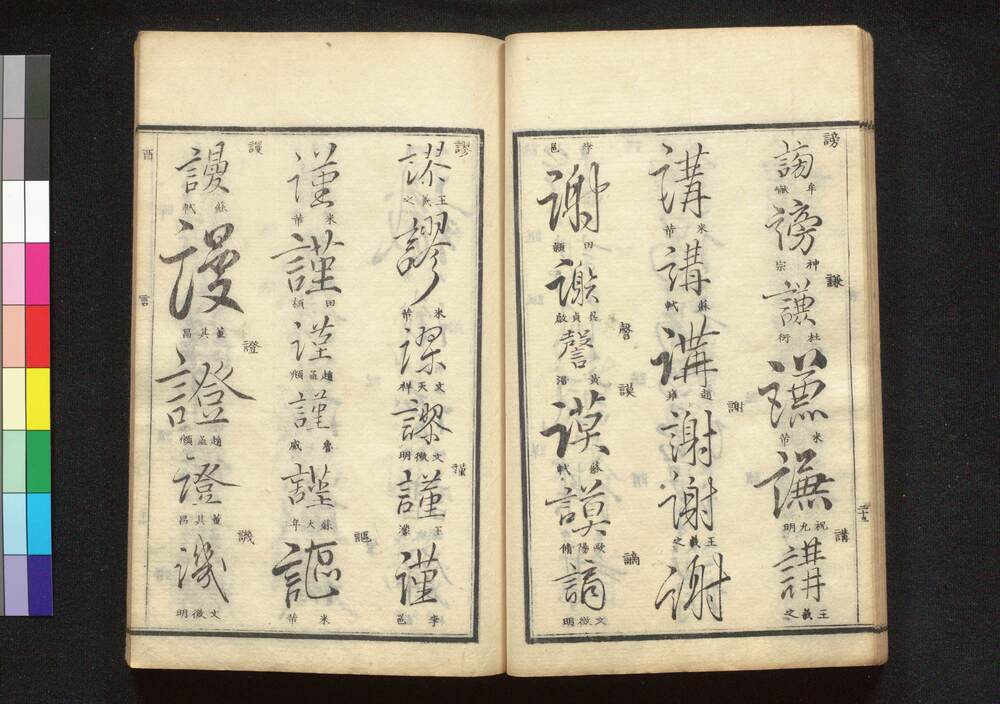 謗
謗
牟巘
謗
神宗
謙
謙
杜衍
謙
米芾
謙
祝允明
講
講
王羲之
講
米芾
講
蘇軾
講
趙雍
謝
謝
謝
王羲之
謝
李邕
謝
田頵
謝
謦
謦
黃溍
謨
謨
蘇軾
謨
歐陽脩
謫
謫
文徵明
謬
謬
王羲之
謬
米芾
謬
文天祥
謬
文徵明
謹
謹
王濛
謹
李邕
謹
米芾
謹
田頵
謹
趙孟頫
謹
魯威
謹
蘇大年
謳
謳
米芾
謾
謾
蘇軾
謾
董其昌
證
證
趙孟頫
證
董其昌
譏
譏
文徵明
酉
言